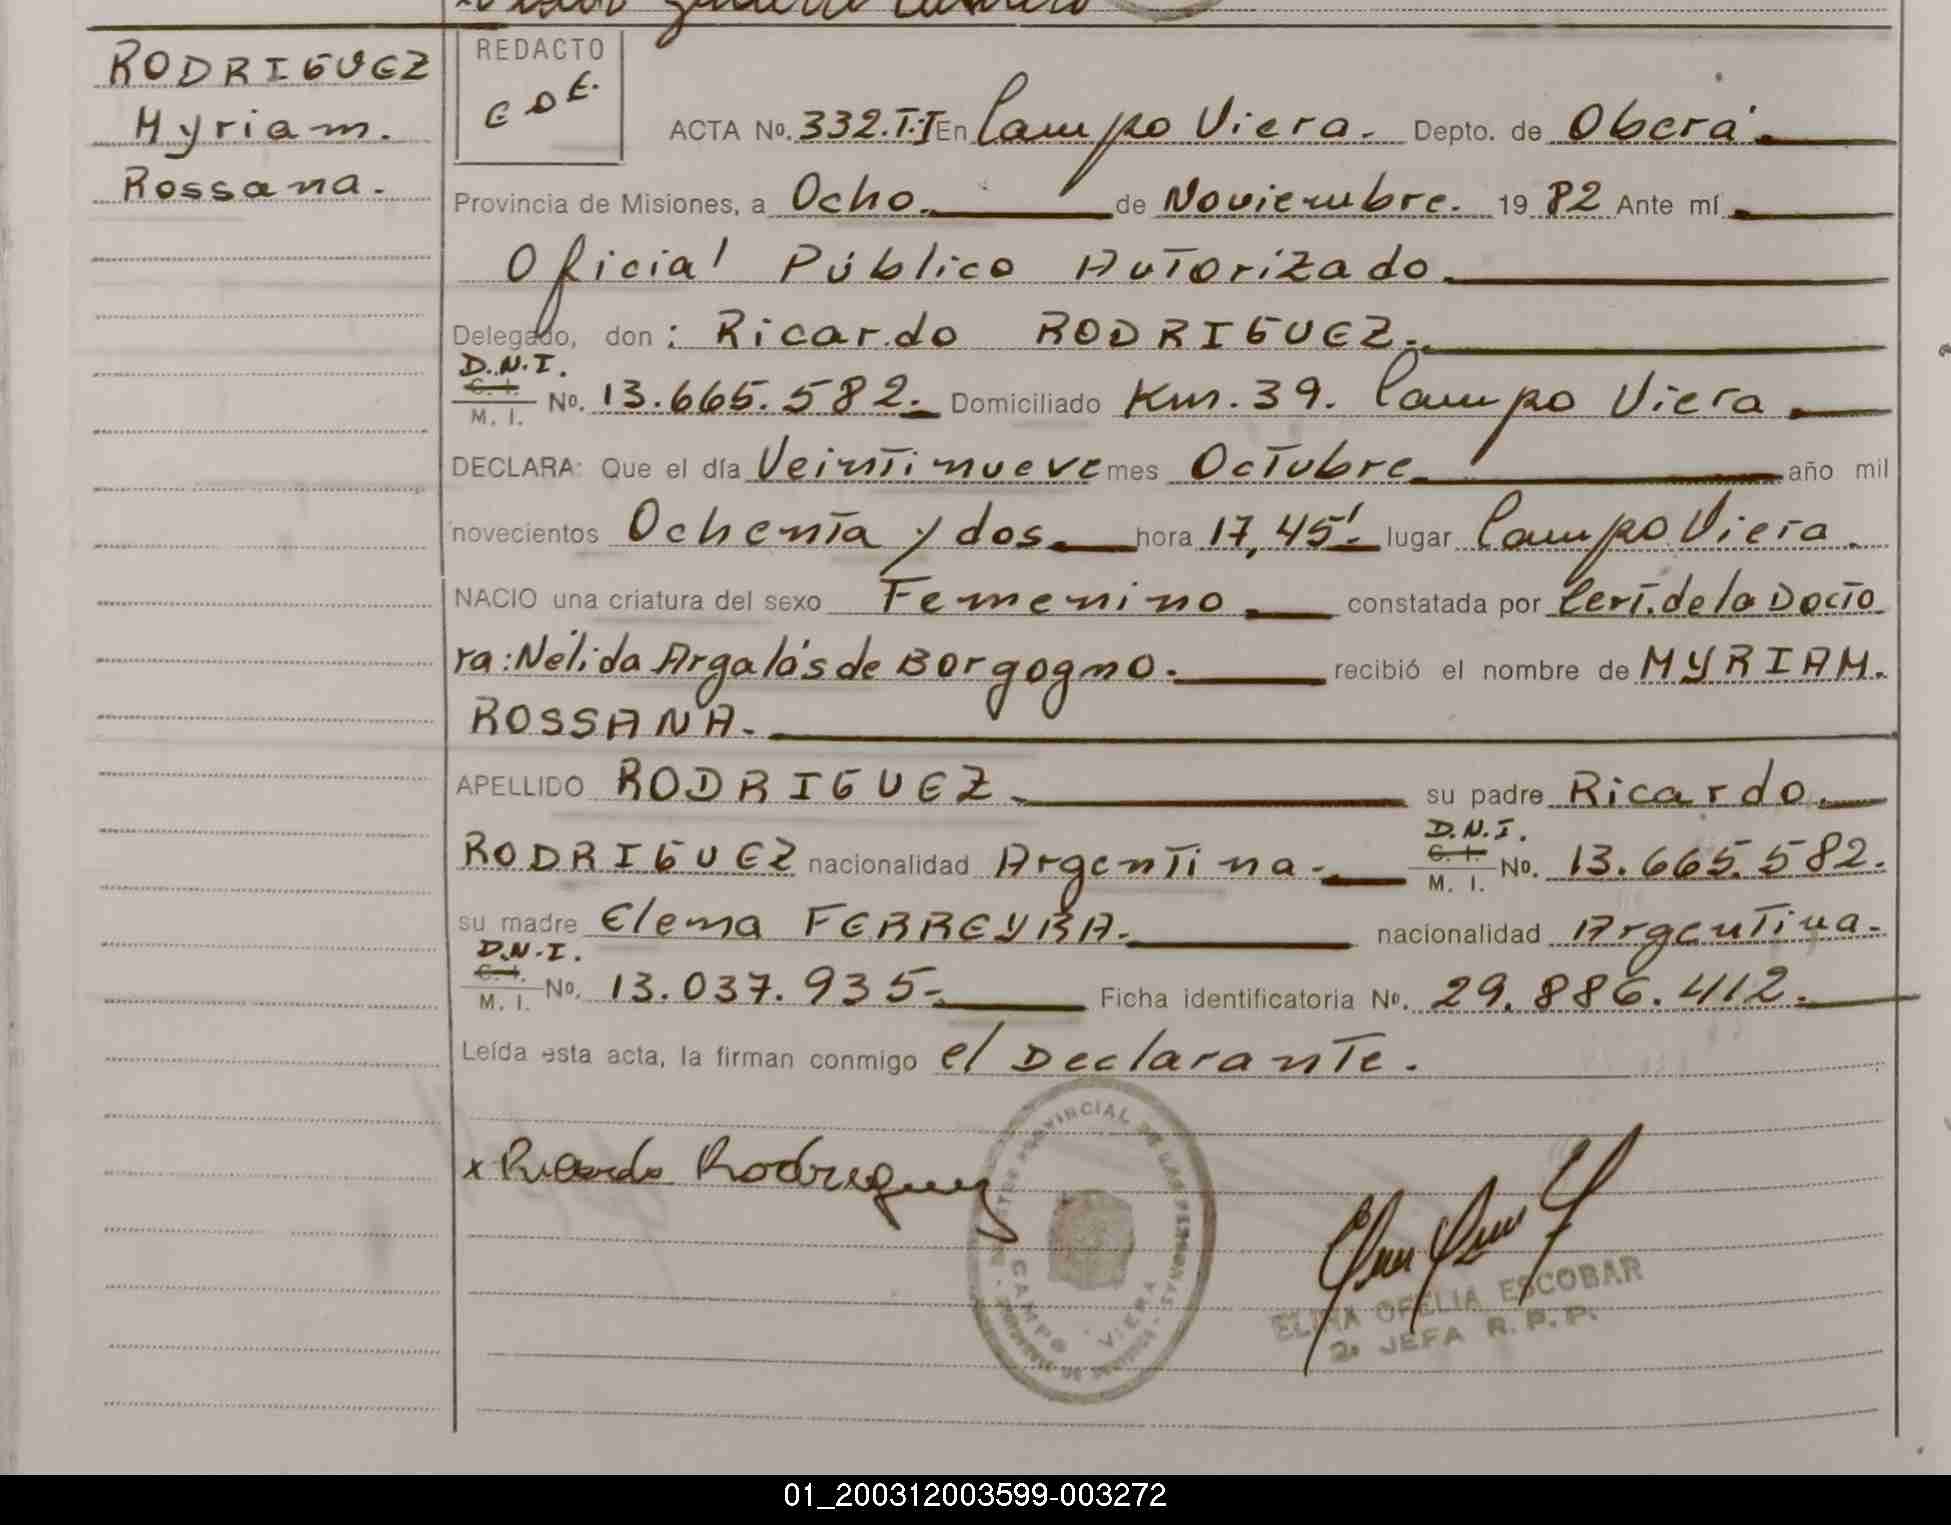 RODRIGUEZ
Myriam.
Rossana.
REDACTO
E O E.
ACTA No. 332.T.I En Campo Viera. Depto. de Oberá.
Provincia de Misiones, a Ocho. de Noviembre. 19 82 Ante mí
Oficial Público Autorizado
Delegado, don: Ricardo RODRIGUEZ.
D.N.I.
C. I.
M. I. No. 13.665.582. Domiciliado Km. 39. Campo Viera
DECLARA: Que el día Veintinueve mes Octubre año mil
novecientos Ochenta y dos. hora 17,45'. lugar Campo Viera.
NACIO una criatura del sexo Femenino constatada por Cert. de la Docto
ra: Nélida Argalás de Borgogno. recibió el nombre de MYRIAM.
ROSSANA.
APELLIDO RODRIGUEZ su padre Ricardo.
RODRIGUEZ nacionalidad Argentina. D.N.I. C. I. M. I. No. 13.665.582.
su madre Elena FERREYRA. nacionalidad Argentina.
D.N.I.
C. I.
M. I. No. 13.037.935 Ficha identificatoria No. 29.886.412.
Leída esta acta, la firman conmigo el Declarante.
x Ricardo Rodriguez
PROVINCIAL DE LAS PERSONAS
CAMPO VIERA
ELINA OFELIA ESCOBAR
2a JEFA R.P.P.
01_200312003599-003272